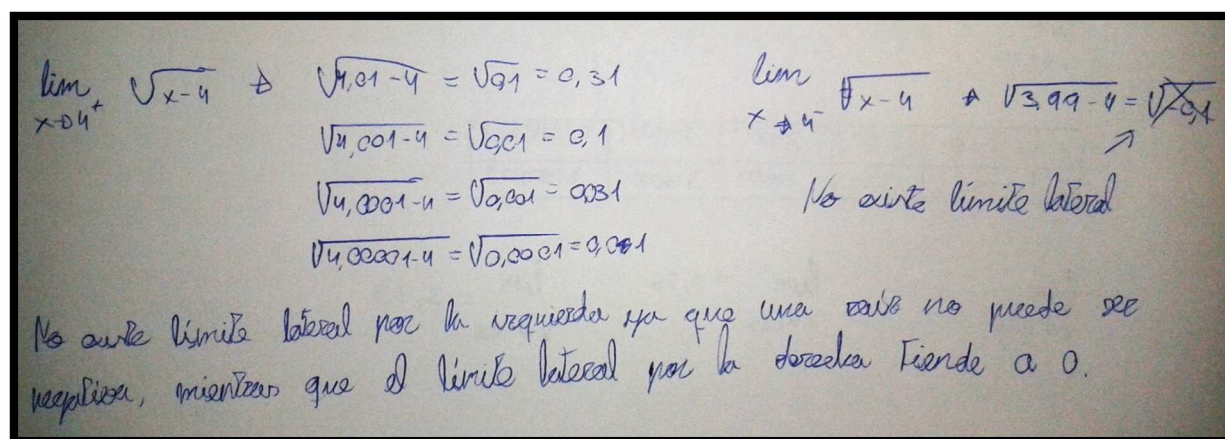 lim x→4⁺ √x-4 → √4,01-4 = √0,1 = 0,31
√4,001-4 = √0,01 = 0,1
√4,0001-4 = √0,001 = 0,031
√4,00001-4 = √0,0001 = 0,001
lim x→4⁻ √x-4 → √3,99-4 = √-0,1
No existe límite lateral
No existe límite lateral por la izquierda ya que una raíz no puede ser
negativa, mientras que el límite lateral por la derecha tiende a 0.